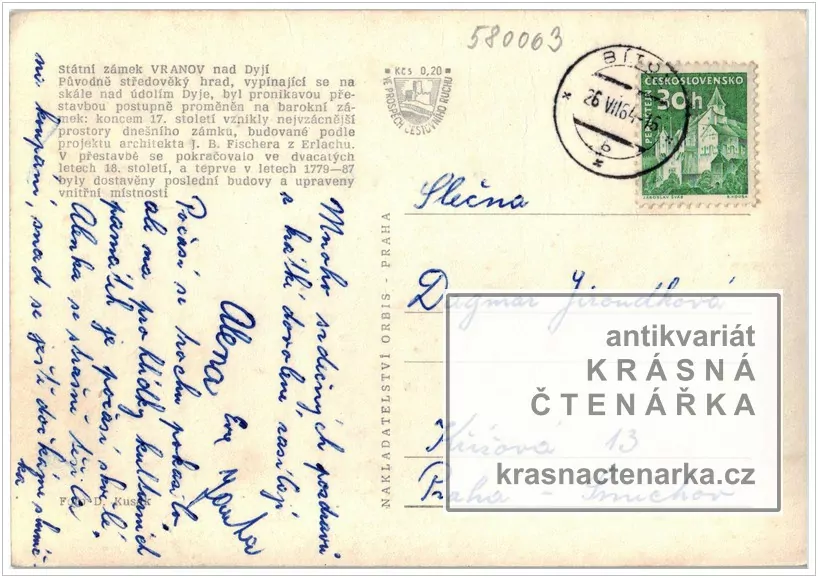 580063
Státní zámek VRANOV nad Dyjí
Původně středověký hrad, vypínající se na
skále nad údolím Dyje, byl pronikavou pře-
stavbou postupně proměněn na barokní zá-
mek: koncem 17. století vznikly nejvzácnější
prostory dnešního zámku, budované podle
projektu architekta J. B. Fischera z Erlachu.
V přestavbě se pokračovalo ve dvacatých
letech 18. století, a teprve v letech 1779—87
byly dostavěny poslední budovy a upraveny
vnitřní místnosti
Kčs 0,20
VE PROSPĚCH CESTOVNÍHO RUCHU
BÍTOV
26 VII 64-16
b
ČESKOSLOVENSKO
30h
PERNŠTEJN
JAROSLAV ŠVÁB
Mnoho srdečných pozdravů
z krátké dovolené zasílají
Alena Eva
Počasí se trochu pokazilo
ale na prohlídky kulturních
památek je počasí skvělé,
Alenka se strašně těšila
na koupání, snad se ještě dočkáme sluníč-
ka
NAKLADATELSTVÍ ORBIS - PRAHA
Foto D. Kusák
Slečna
Dagmar Jiroudková
13
Praha - Smíchov
antikvariát
KRÁSNÁ
ČTENÁŘKA
krasnactenarka.cz